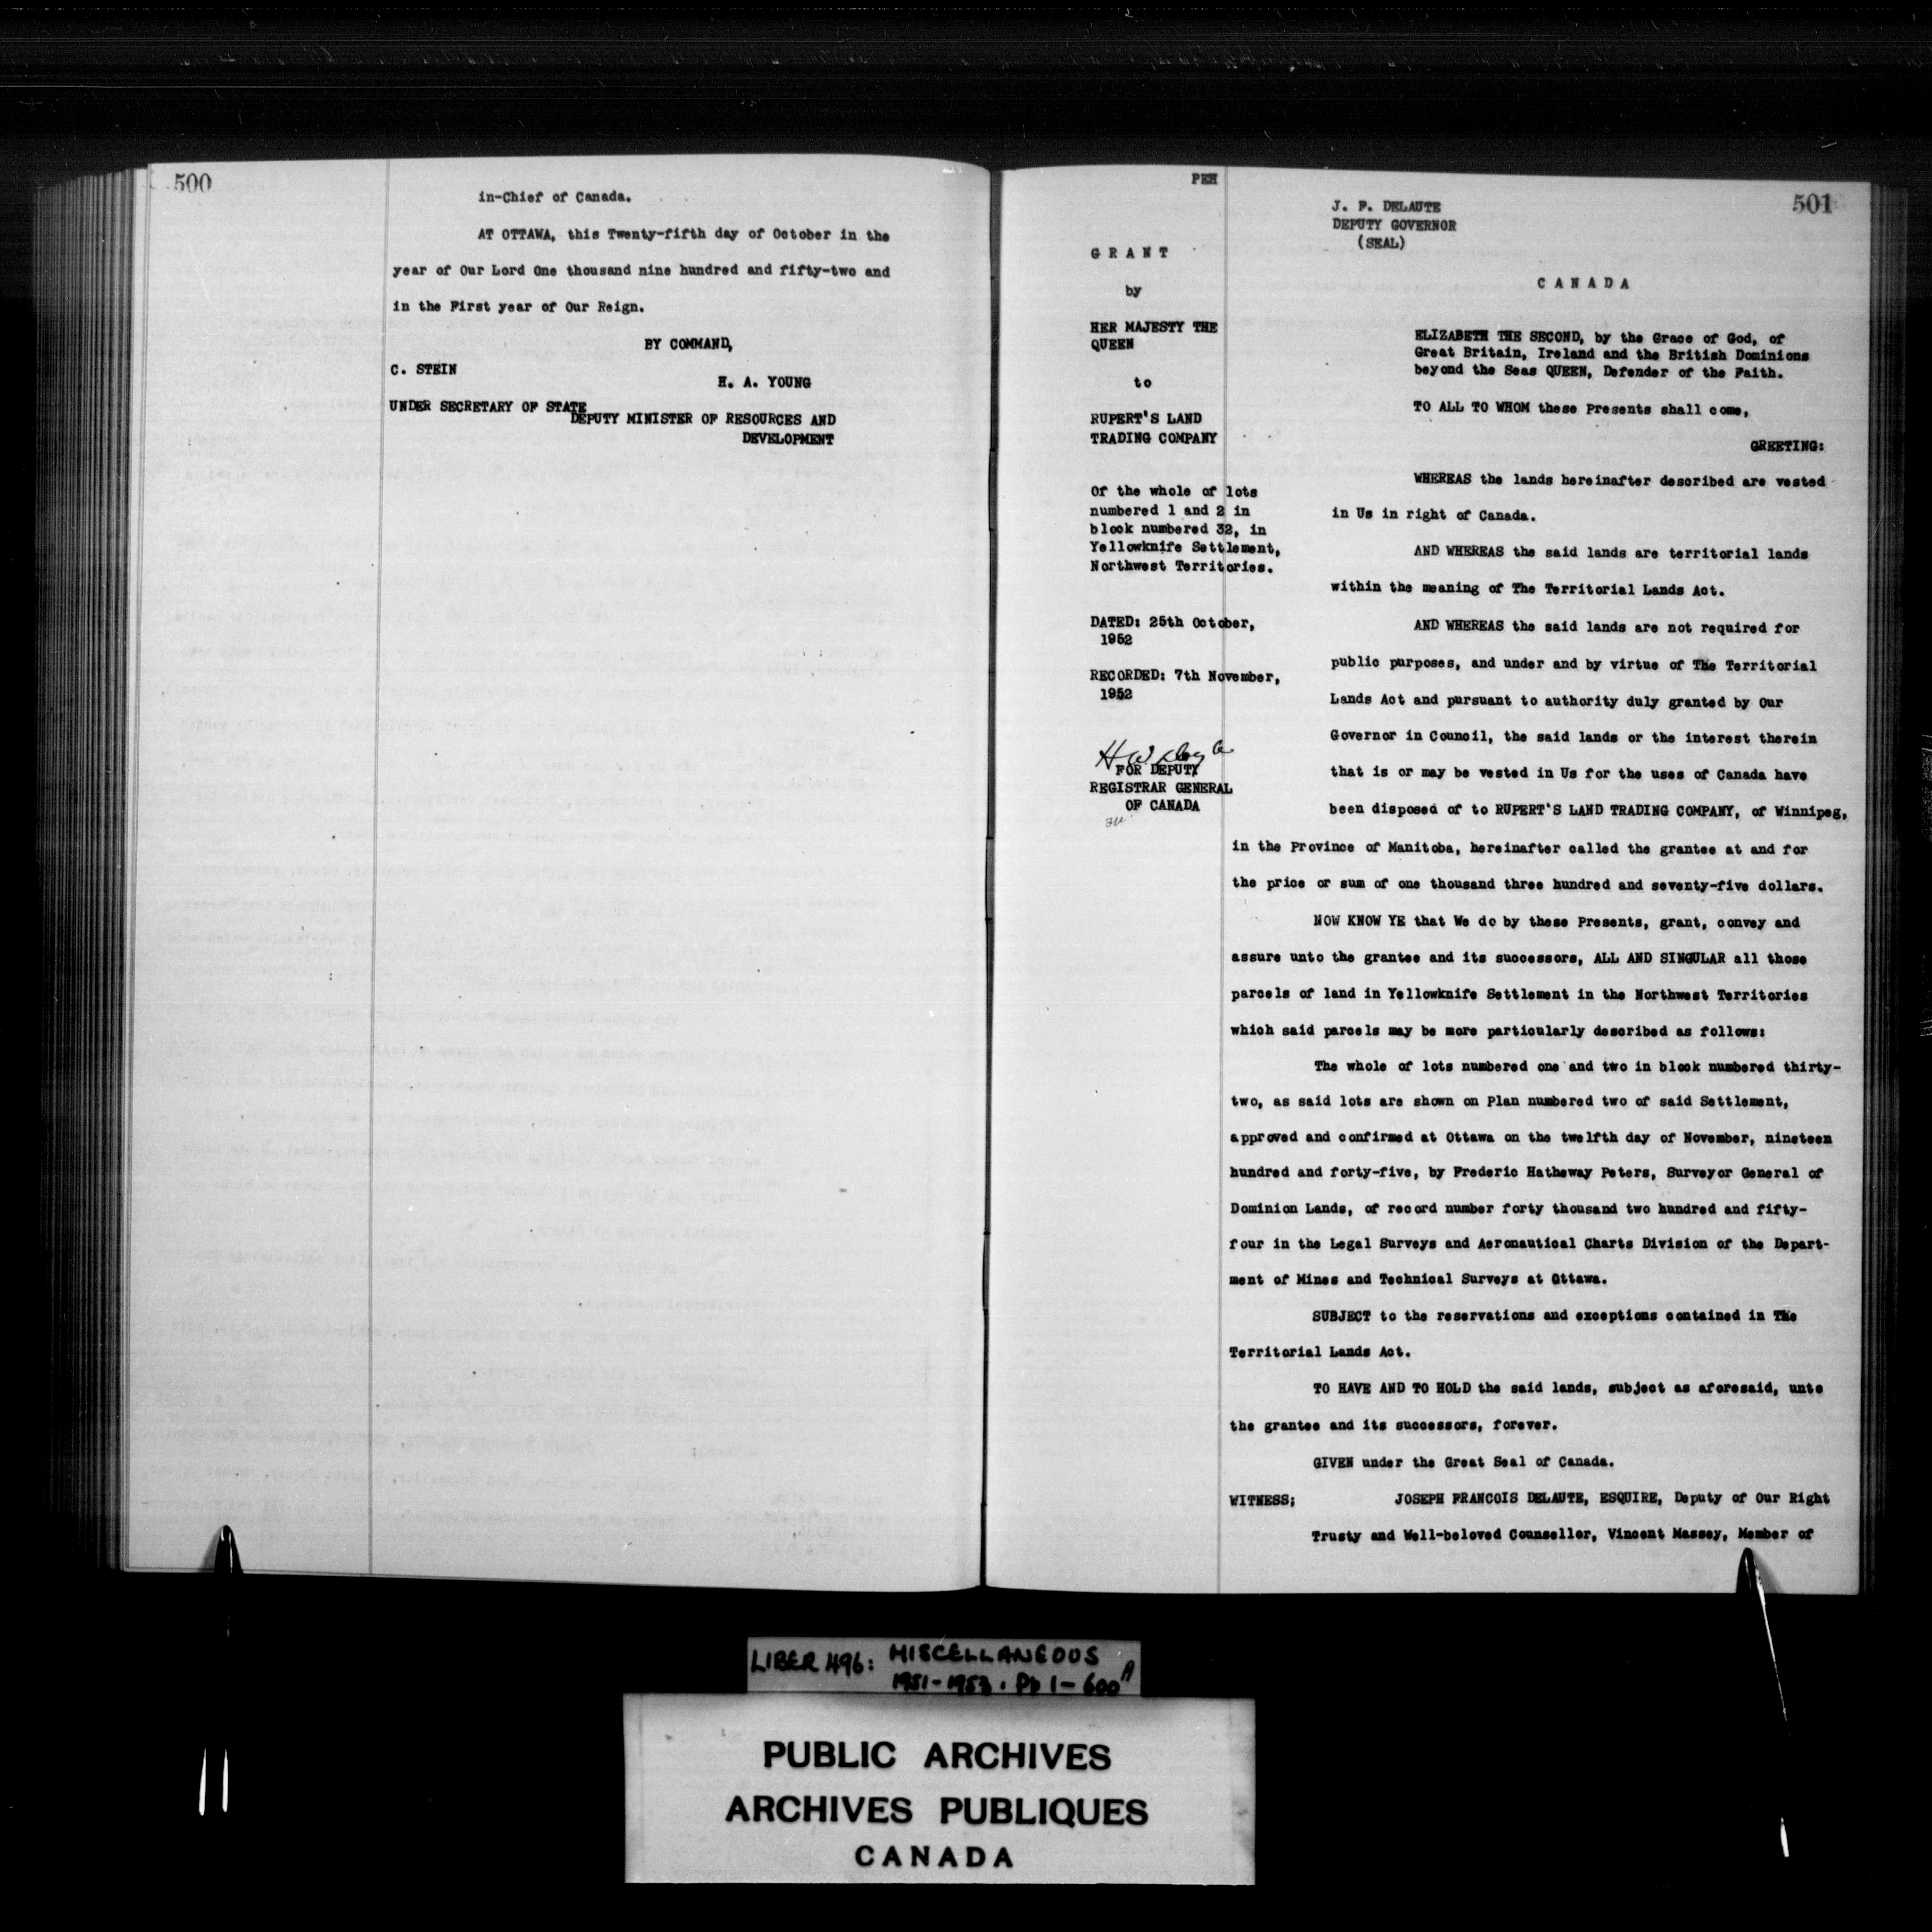 500
in-Chief of Canada.
AT OTTAWA, this Twenty-fifth day of October in the
year of Our Lord One thousand nine hundred and fifty-two and
in the First year of Our Reign.
BY COMMAND,
C. STEIN
H. A. YOUNG
UNDER SECRETARY OF STATE
DEPUTY MINISTER OF RESOURCES AND
DEVELOPMENT
PEH
501
J. F. DELAUTE
DEPUTY GOVERNOR
(SEAL)
GRANT
by
HER MAJESTY THE
QUEEN
to
RUPERT'S LAND
TRADING COMPANY
Of the whole of lots
numbered 1 and 2 in
block numbered 32, in
Yellowknife Settlement,
Northwest Territories.
DATED: 25th October,
1952
RECORDED: 7th November,
1952
FOR DEPUTY
REGISTRAR GENERAL
OF CANADA
CANADA
ELIZABETH THE SECOND, by the Grace of God, of
Great Britain, Ireland and the British Dominions
beyond the Seas QUEEN, Defender of the Faith.
TO ALL TO WHOM these Presents shall come,
GREETING:
WHEREAS the lands hereinafter described are vested
in Us in right of Canada.
AND WHEREAS the said lands are territorial lands
within the meaning of The Territorial Lands Act.
AND WHEREAS the said lands are not required for
public purposes, and under and by virtue of The Territorial
Lands Act and pursuant to authority duly granted by Our
Governor in Council, the said lands or the interest therein
that is or may be vested in Us for the uses of Canada have
been disposed of to RUPERT'S LAND TRADING COMPANY, of Winnipeg,
in the Province of Manitoba, hereinafter called the grantee at and for
the price or sum of one thousand three hundred and seventy-five dollars.
NOW KNOW YE that We do by these Presents, grant, convey and
assure unto the grantee and its successors, ALL AND SINGULAR all those
parcels of land in Yellowknife Settlement in the Northwest Territories
which said parcels may be more particularly described as follows:
The whole of lots numbered one and two in block numbered thirty-
two, as said lots are shown on Plan numbered two of said Settlement,
approved and confirmed at Ottawa on the twelfth day of November, nineteen
hundred and forty-five, by Frederic Hatheway Peters, Surveyor General of
Dominion Lands, of record number forty thousand two hundred and fifty-
four in the Legal Surveys and Aeronautical Charts Division of the Depart-
ment of Mines and Technical Surveys at Ottawa.
SUBJECT to the reservations and exceptions contained in The
Territorial Lands Act.
TO HAVE AND TO HOLD the said lands, subject as aforesaid, unto
the grantee and its successors, forever.
GIVEN under the Great Seal of Canada.
WITNESS; JOSEPH FRANCOIS DELAUTE, ESQUIRE, Deputy of Our Right
Trusty and Well-beloved Counsellor, Vincent Massey, Member of
LIBER 496: MISCELLANEOUS
1951-1953. Pp 1-600 A
PUBLIC ARCHIVES
ARCHIVES PUBLIQUES
CANADA